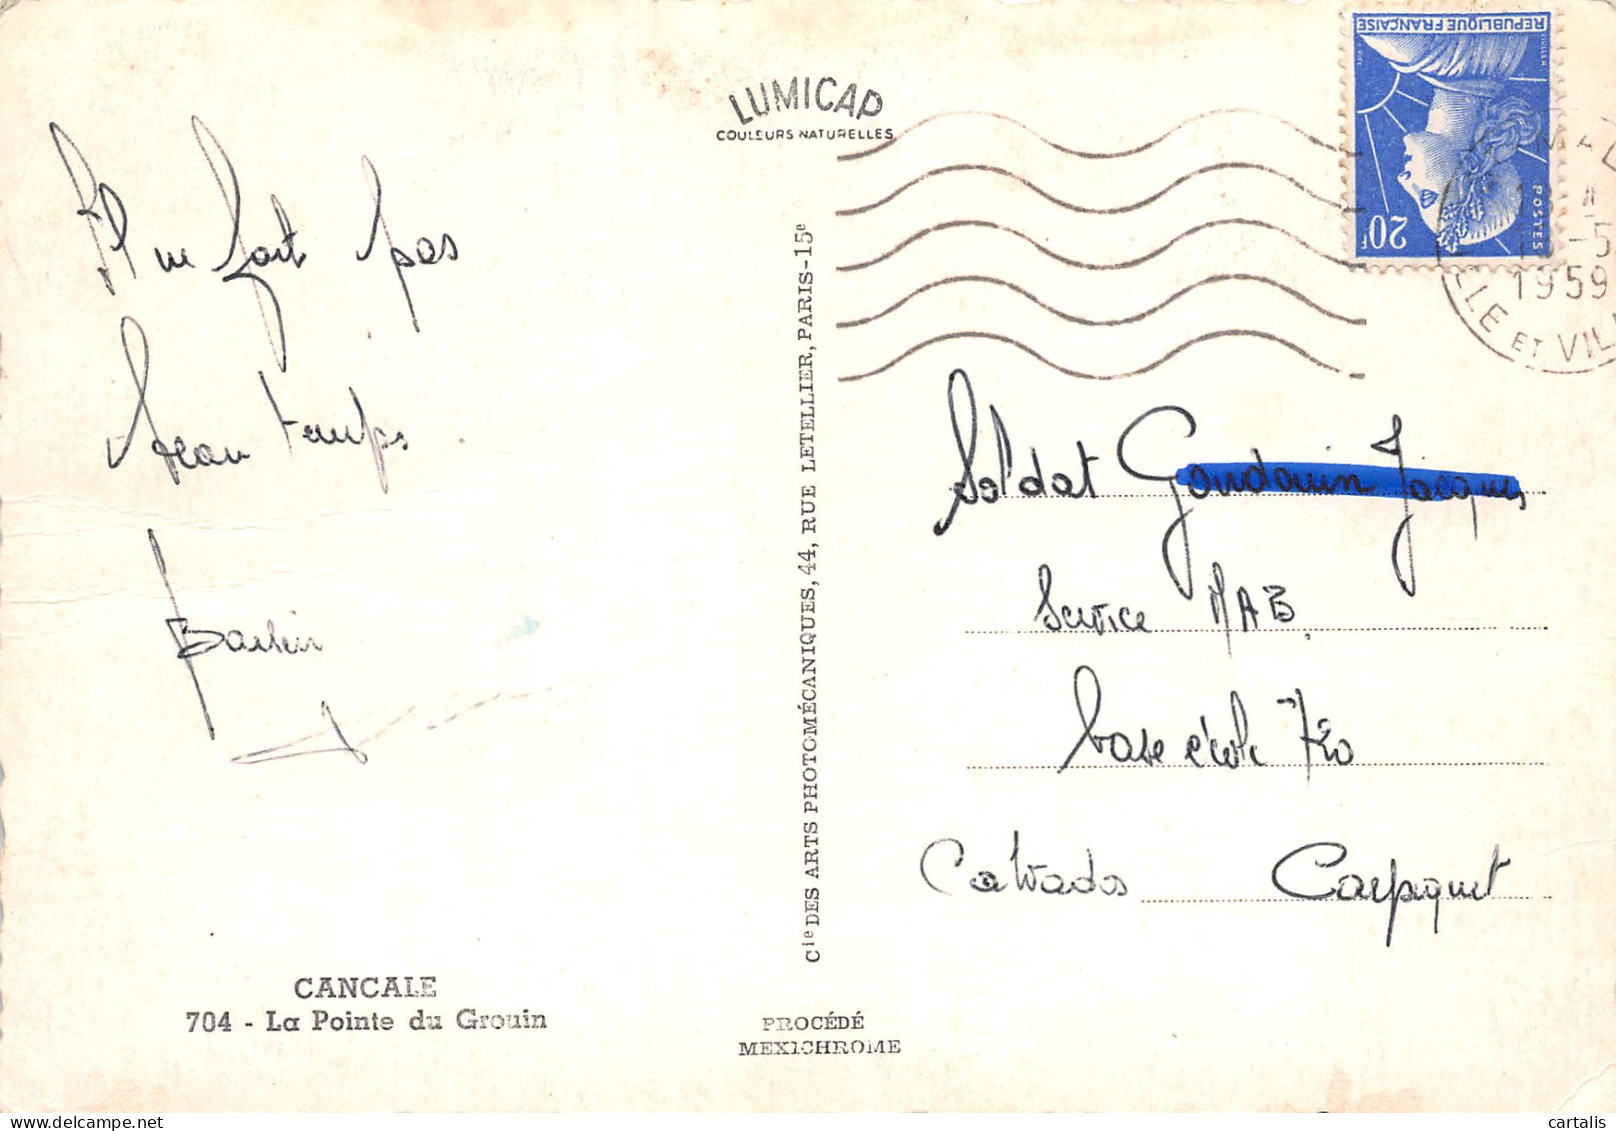 LUMICAP
COULEURS NATURELLES
Il ne fait pas
beau temps
CANCALE
704 - La Pointe du Grouin
Cie DES ARTS PHOTOMÉCANIQUES, 44, RUE LETELLIER, PARIS-15e
PROCÉDÉ
MEXICHROME
REPUBLIQUE FRANÇAISE
POSTES
20F
1959
ET VIL
Soldat Goudouin Jacques
Service MAB
base école 720
Calvados Carpiquet
cartalis